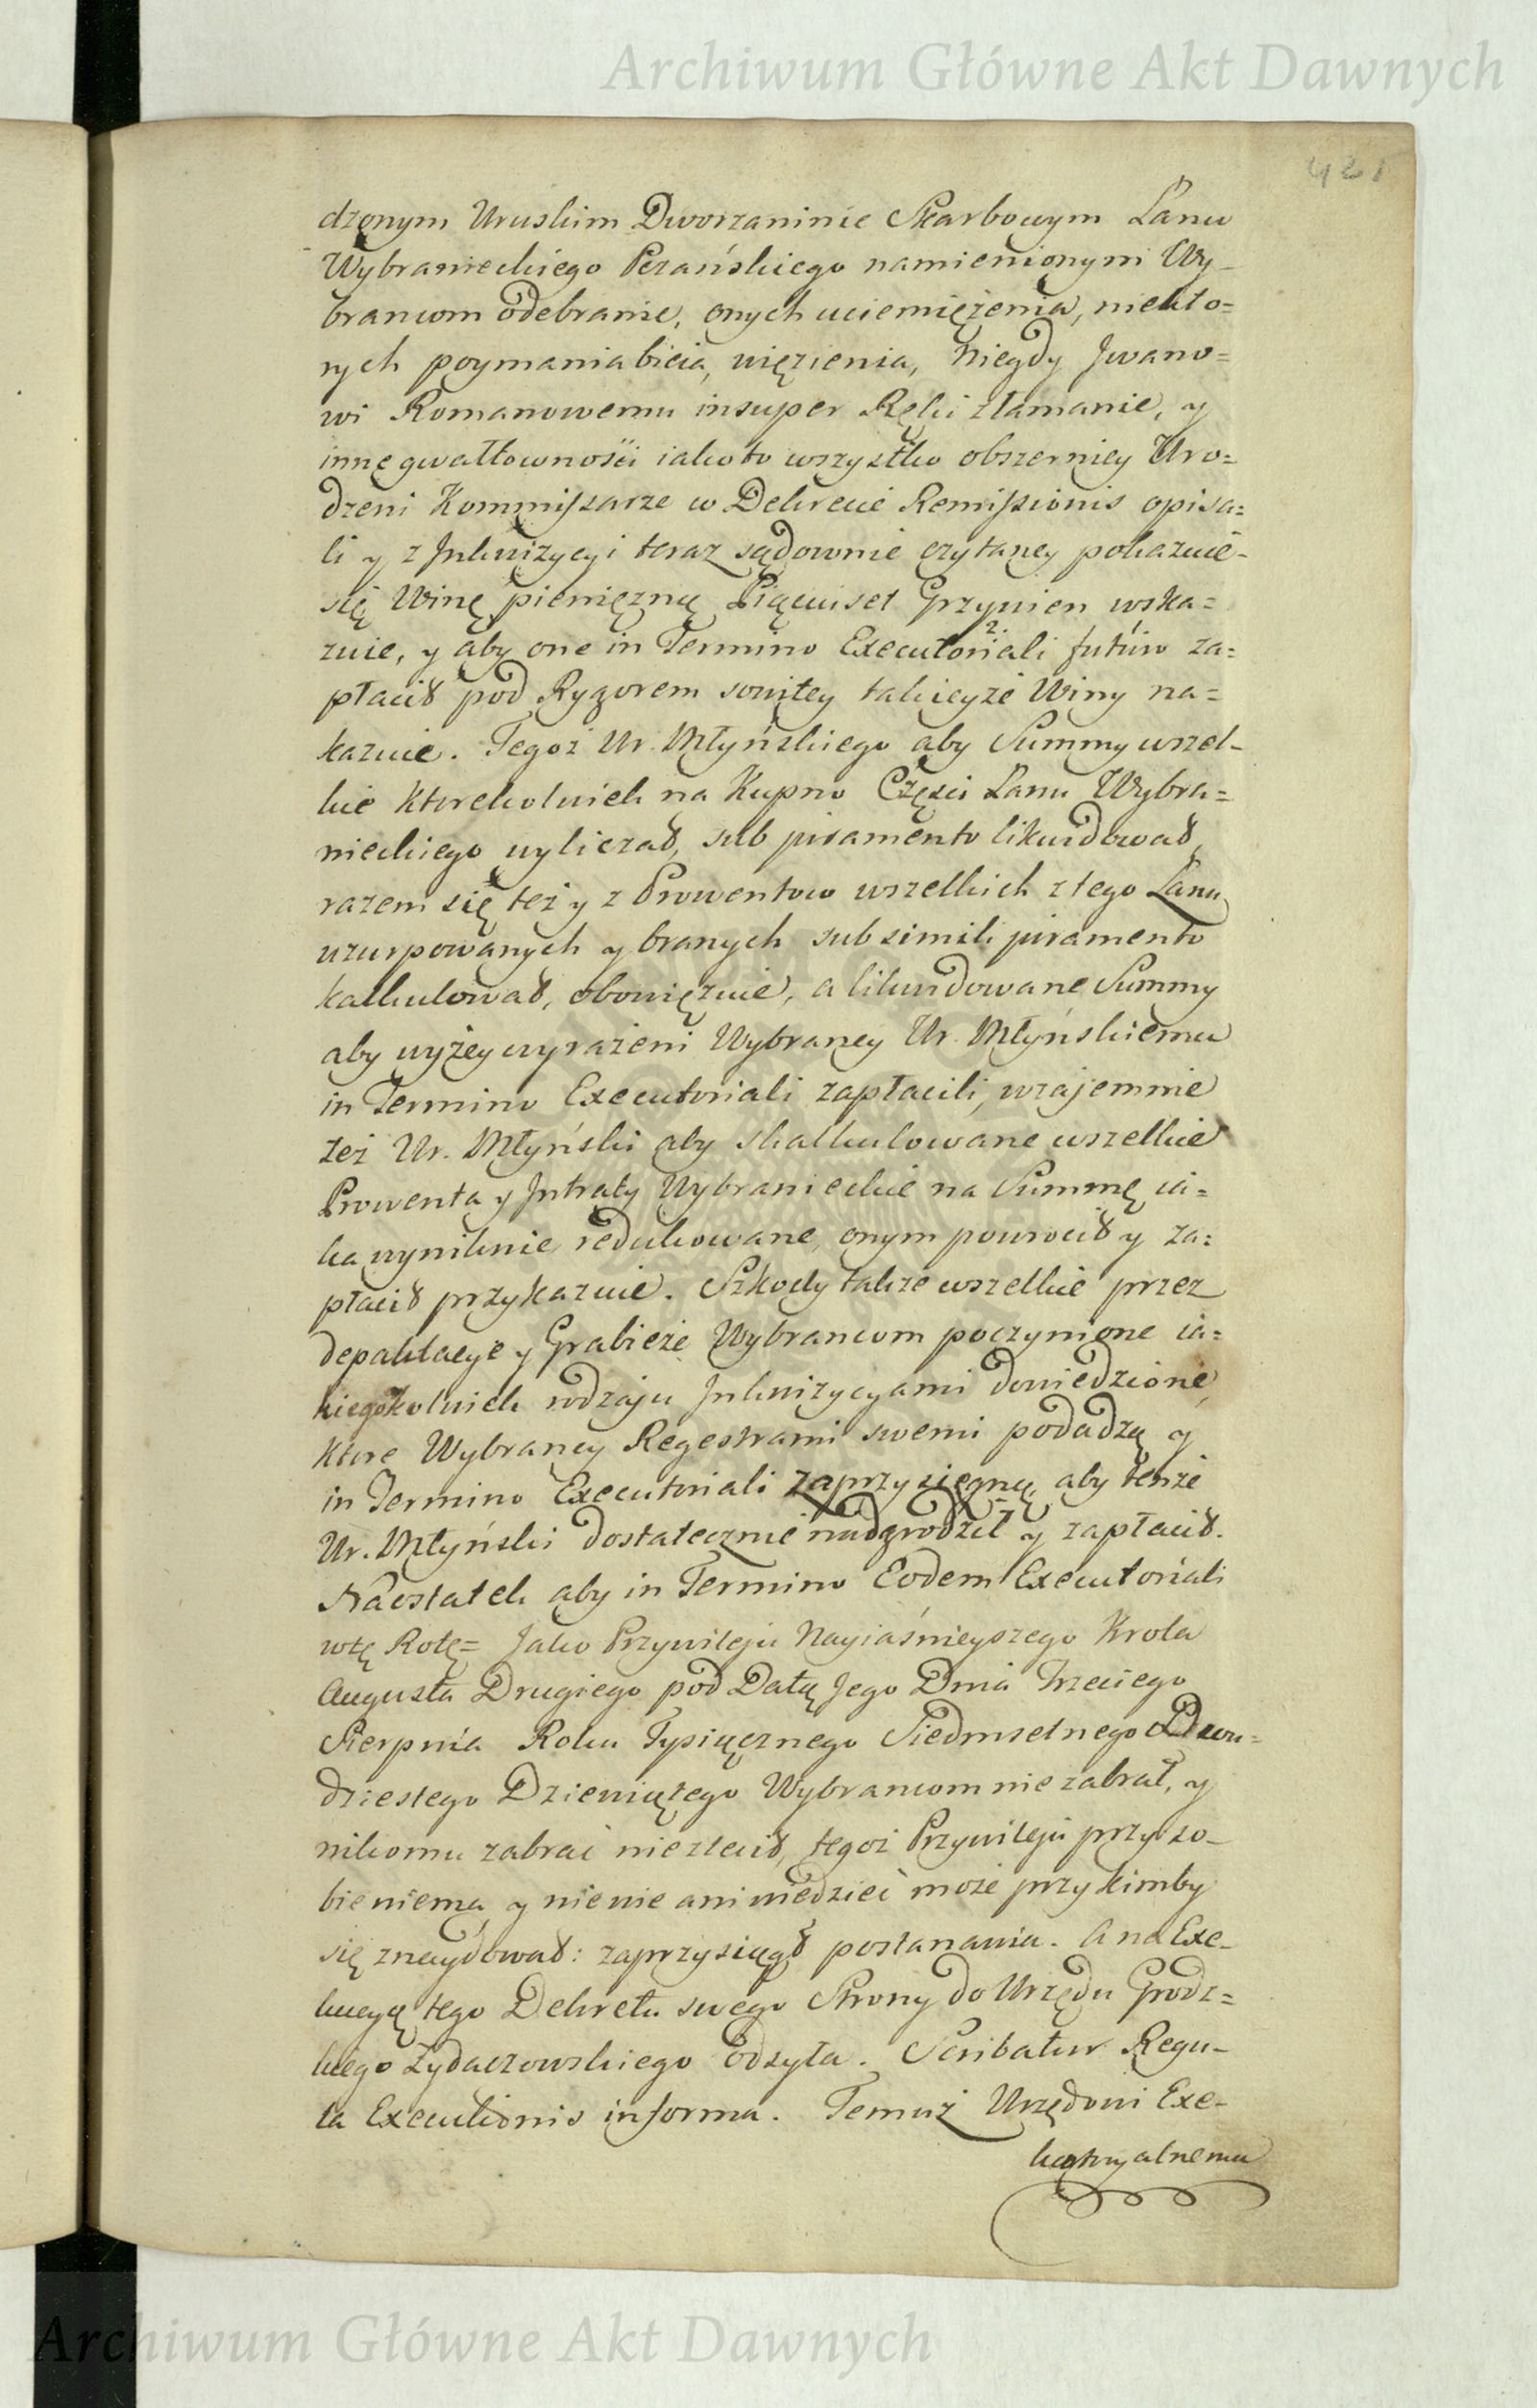 Archiwum Główne Akt Dawnych
421
dzonym Uruskim Dworzaninie Skarbowym Łanu
Wybranieckiego Perańskiego namienionym Wy-
brancom odebranie, onych uciemiężenia, niekto=
rych poymania bicia, więzienia, Niegdy Jwano=
wi Romanowemu insuper Ręki złamanie, y
inne gwałtowności iako to wszystko obszerniey Uro=
dzeni Kommissarze w Dekrecie Remissionis opisa=
li y z Jnkwizycyi teraz sądownie czytaney pokazuie-
się Winę pieniężną Pięciuset Grzywien wska=
zuie, y aby one in Termino Executoriali futuro za=
płacił pod Rygorem sowitey takieyże Winy na=
kazuie. Tegoż Ur. Młyńskiego aby Summy wszel-
kie ktorekolwiek na Kupno Części Łanu Wybra=
nieckiego wyliczał, sub juramento likwidował,
razem się też y z Prowentow wszelkich z tego Łanu
uzurpowanych y branych sub simili juramento
kalkulował, obowięzuie, a likwidowane Summy
aby wyżey wyrażeni Wybrancy Ur. Młyńskiemu
in Termino Executoriali zapłacili, wzajemnie
też Ur. Młyński aby skalkulowane wszelkie
Prowenta y Jntraty Wybranieckie na Summę ia=
ka wyniknie redukowane, onym powrocił y za=
płacił przykazuie. Szkody także wszelkie przez
depaktacye y Grabieże Wybrancom poczynione ia=
kiegokolwiek rodzaju Jnkwizycyami dowiedzione,
ktore Wybrancy Regestrami swemi podadzą y
in Termino Executoriali zaprzysięgną, aby tenże
Ur. Młyński dostatecznie nadgrodził y zapłacił.
Naostatek aby in Termino Eodem Executoriali
w tę Rotę= Jako Przywileju Nayiaśnieyszego Krola
Augusta Drugiego pod Datą Jego Dnia Trzeciego
Sierpnia Roku Tysiącznego Siedmsetnego Dwu=
dziestego Dziewiątego Wybrancom nie zabrał, y
nikomu zabrać nie zlecił, tegoż Przywileju przy so-
bie niema y nie wie ani wiedzieć może przy kimby
się znaydował: zaprzysiągł postanawia. A na Exe-
kucyą tego Dekretu swego Strony do Urzędu Grodz=
kiego Zydaczowskiego odsyła. Scribatur Regu-
la Executionis in forma. Temuż Urzędowi Exe-
kutoryalnemu
Archiwum Główne Akt Dawnych